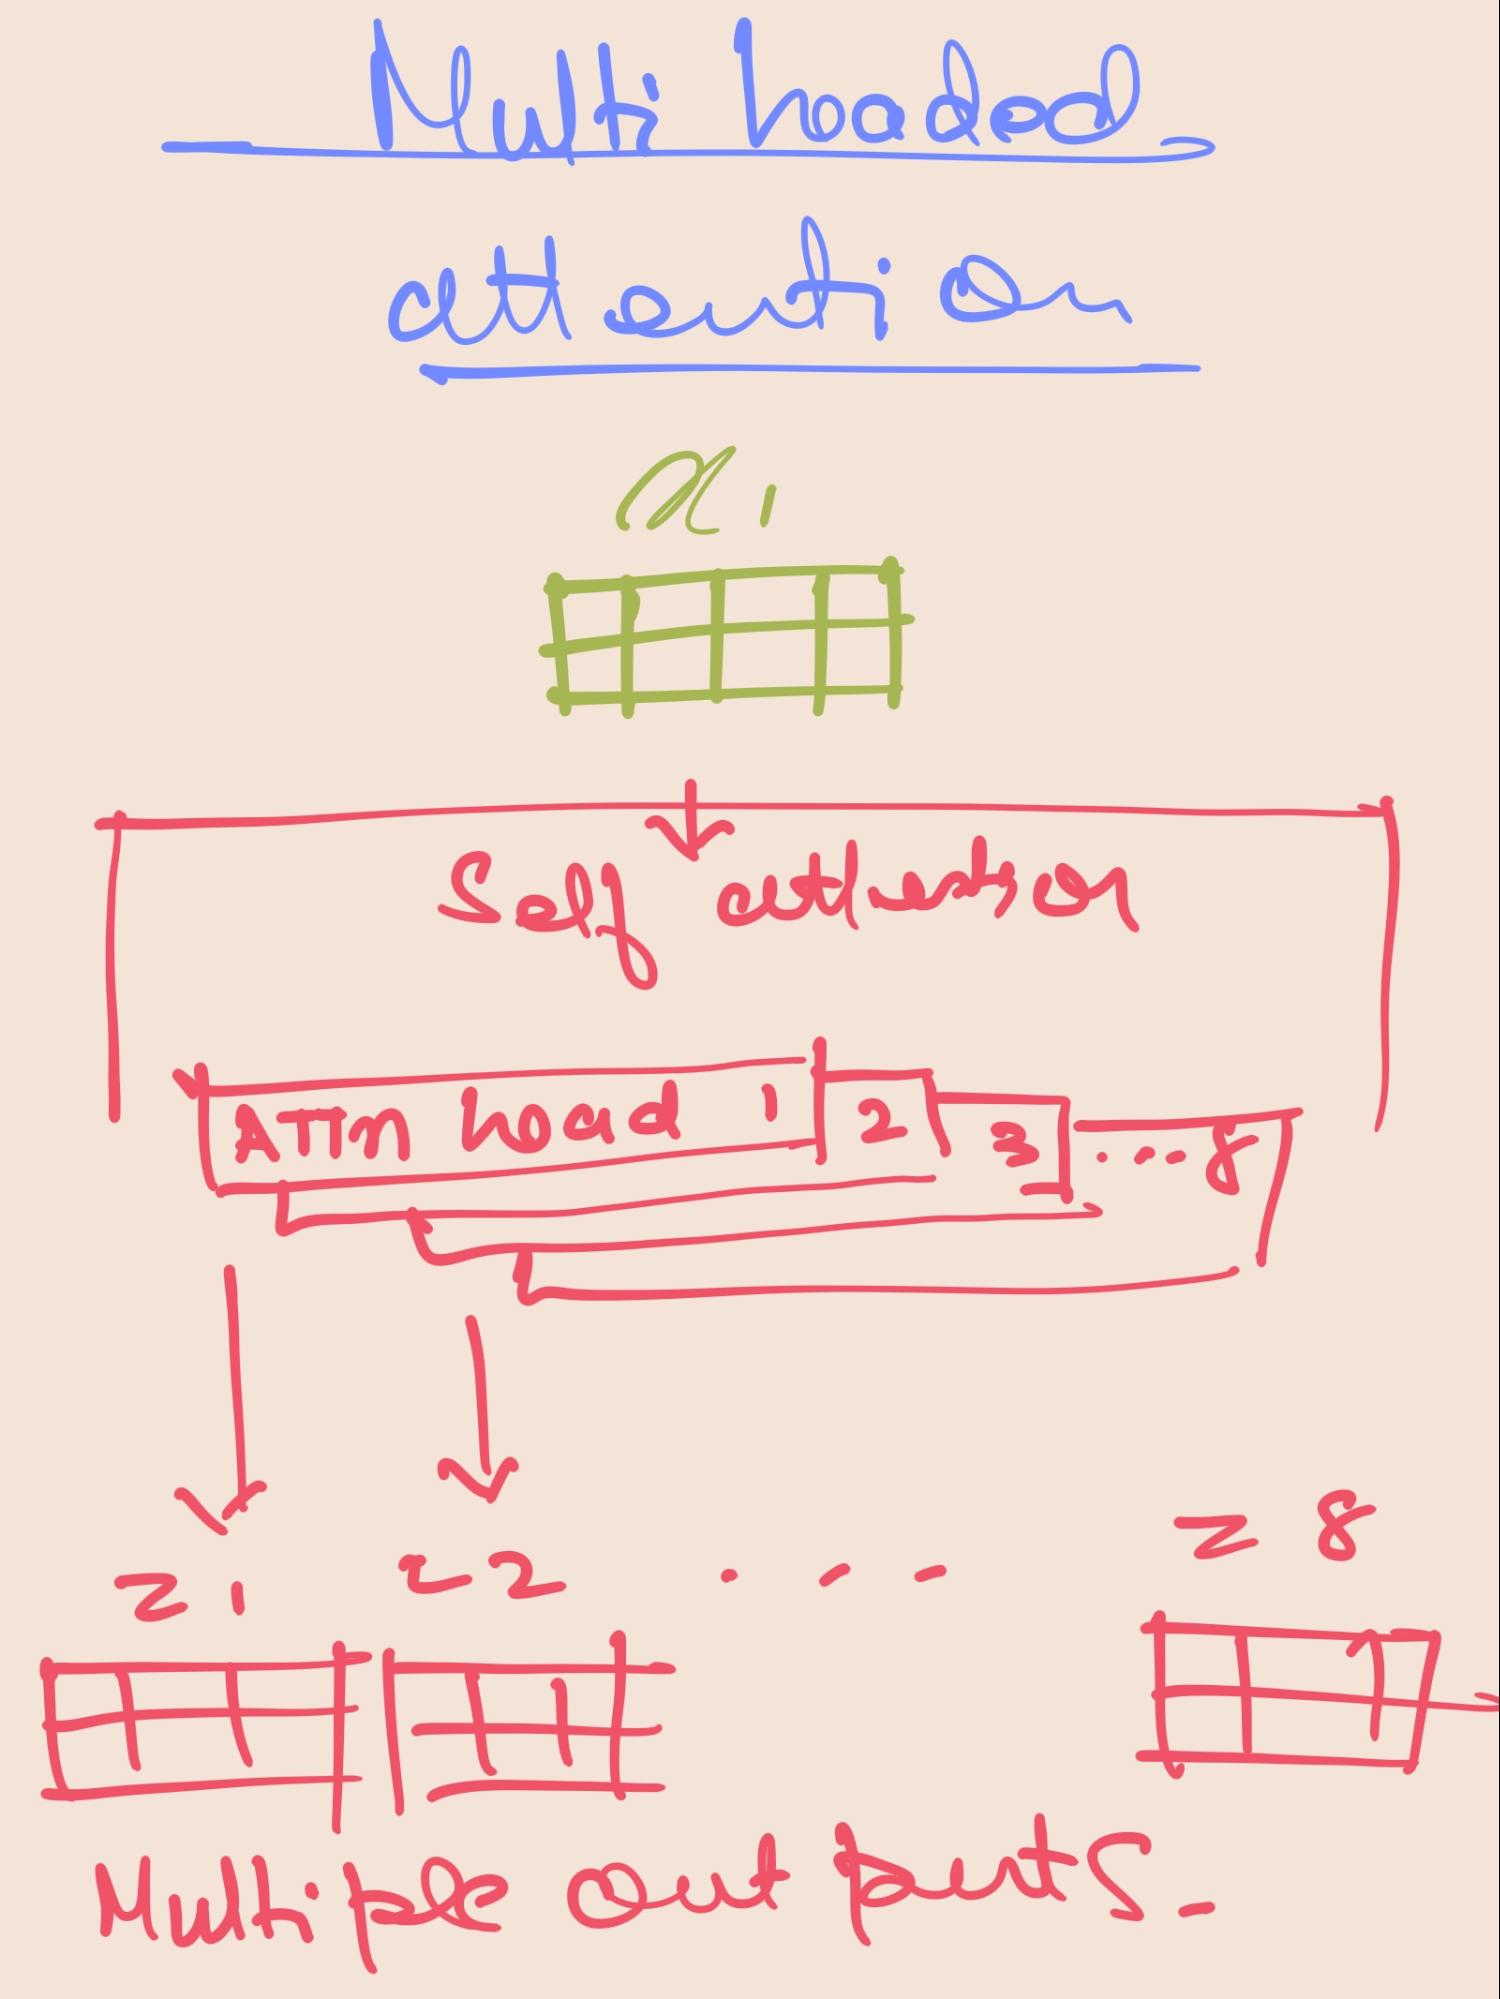 Multi headed
attention
x1
Self attention
ATTn head 1 2 3 ... 8
Z1 Z2 ... Z8
Multiple outputs.